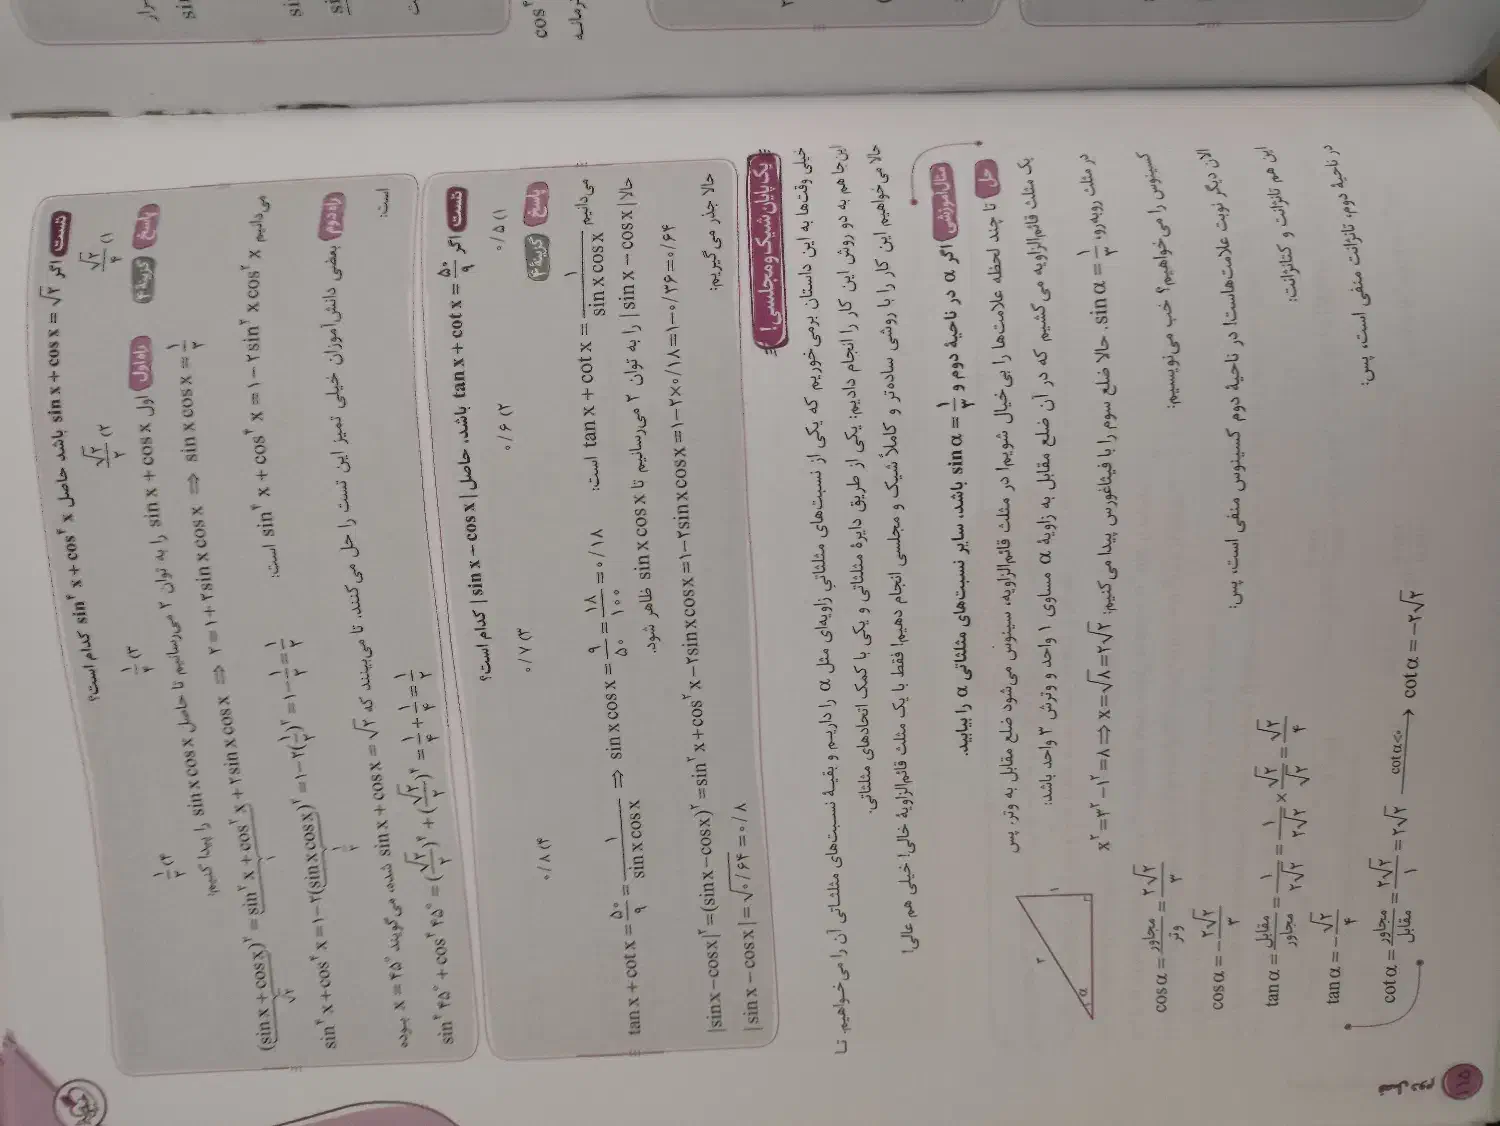 تست اگر sin x + cos x = √۲ باشد حاصل sin⁴ x + cos⁴ x کدام است؟
۱) √۲/۴
۲) √۲/۲
۳) ۱/۴
۴) ۱/۲
پاسخ گزینهٔ ۴
راه اول اول sin x + cos x را به توان ۲ می‌رسانیم تا حاصل sin x cos x را پیدا کنیم:
(sin x + cos x)² = sin² x + cos² x + ۲ sin x cos x ⇒ ۲ = ۱ + ۲ sin x cos x ⇒ sin x cos x = ۱/۲
√۲ ۱
می‌دانیم sin⁴ x + cos⁴ x = ۱ − ۲ sin² x cos² x است:
sin⁴ x + cos⁴ x = ۱ − ۲(sin x cos x)² = ۱ − ۲(۱/۲)² = ۱ − ۱/۲ = ۱/۲
۱/۲
راه دوم بعضی دانش‌آموزان خیلی تمیز این تست را حل می‌کنند. تا می‌بینند که sin x + cos x = √۲ شده، می‌گویند x = ۴۵° بوده
است:
sin⁴ ۴۵° + cos⁴ ۴۵° = (√۲/۲)⁴ + (√۲/۲)⁴ = ۱/۴ + ۱/۴ = ۱/۲
تست اگر tan x + cot x = ۵۰/۹ باشد، حاصل |sin x − cos x| کدام است؟
۱) ۰/۵
۲) ۰/۶
۳) ۰/۷
۴) ۰/۸
پاسخ گزینهٔ ۴
می‌دانیم tan x + cot x = ۱/(sin x cos x) است:
tan x + cot x = ۵۰/۹ = ۱/(sin x cos x) ⇒ sin x cos x = ۹/۵۰ = ۱۸/۱۰۰ = ۰/۱۸
حالا |sin x − cos x| را به توان ۲ می‌رسانیم تا sin x cos x ظاهر شود.
|sin x − cos x|² = (sin x − cos x)² = sin² x + cos² x − ۲ sin x cos x = ۱ − ۲ sin x cos x = ۱ − ۲ × ۰/۱۸ = ۱ − ۰/۳۶ = ۰/۶۴
حالا جذر می‌گیریم:
|sin x − cos x| = √۰/۶۴ = ۰/۸
یک پایان شیک و مجلسی!
خیلی وقت‌ها به این داستان برمی‌خوریم که یکی از نسبت‌های مثلثاتی زاویه‌ای مثل α را داریم و بقیهٔ نسبت‌های مثلثاتی آن را می‌خواهیم. تا
این‌جا هم به دو روش این کار را انجام دادیم: یکی از طریق دایرهٔ مثلثاتی و یکی با کمک اتحادهای مثلثاتی.
حالا می‌خواهیم این کار را با روشی ساده‌تر و کاملاً شیک و مجلسی انجام دهیم! فقط با یک مثلث قائم‌الزاویهٔ خالی! خیلی هم عالی!
مثال آموزشی اگر α در ناحیهٔ دوم و sin α = ۱/۳ باشد، سایر نسبت‌های مثلثاتی α را بیابید.
حل تا چند لحظه علامت‌ها را بی‌خیال شویم! در مثلث قائم‌الزاویه، سینوس می‌شود ضلع مقابل به وتر. پس
یک مثلث قائم‌الزاویه می‌کشیم که در آن ضلع مقابل به زاویهٔ α مساوی ۱ واحد و وترش ۳ واحد باشد:
۳
۱
α
در مثلث روبه‌رو، sin α = ۱/۳. حالا ضلع سوم را با فیثاغورس پیدا می‌کنیم: x² = ۳² − ۱² = ۸ ⇒ x = √۸ = ۲√۲
کسینوس را می‌خواهیم؟ خب می‌نویسیم:
cos α = مجاور/وتر = ۲√۲/۳
الان دیگر نوبت علامت‌هاست! در ناحیهٔ دوم کسینوس منفی است، پس:
cos α = − ۲√۲/۳
این هم تانژانت و کتانژانت:
tan α = مقابل/مجاور = ۱/۲√۲ = ۱/۲√۲ × √۲/√۲ = √۲/۴
در ناحیهٔ دوم، تانژانت منفی است، پس:
tan α = − √۲/۴
cot α = مجاور/مقابل = ۲√۲/۱ = ۲√۲ cot α<۰ → cot α = −۲√۲
۱۱۵